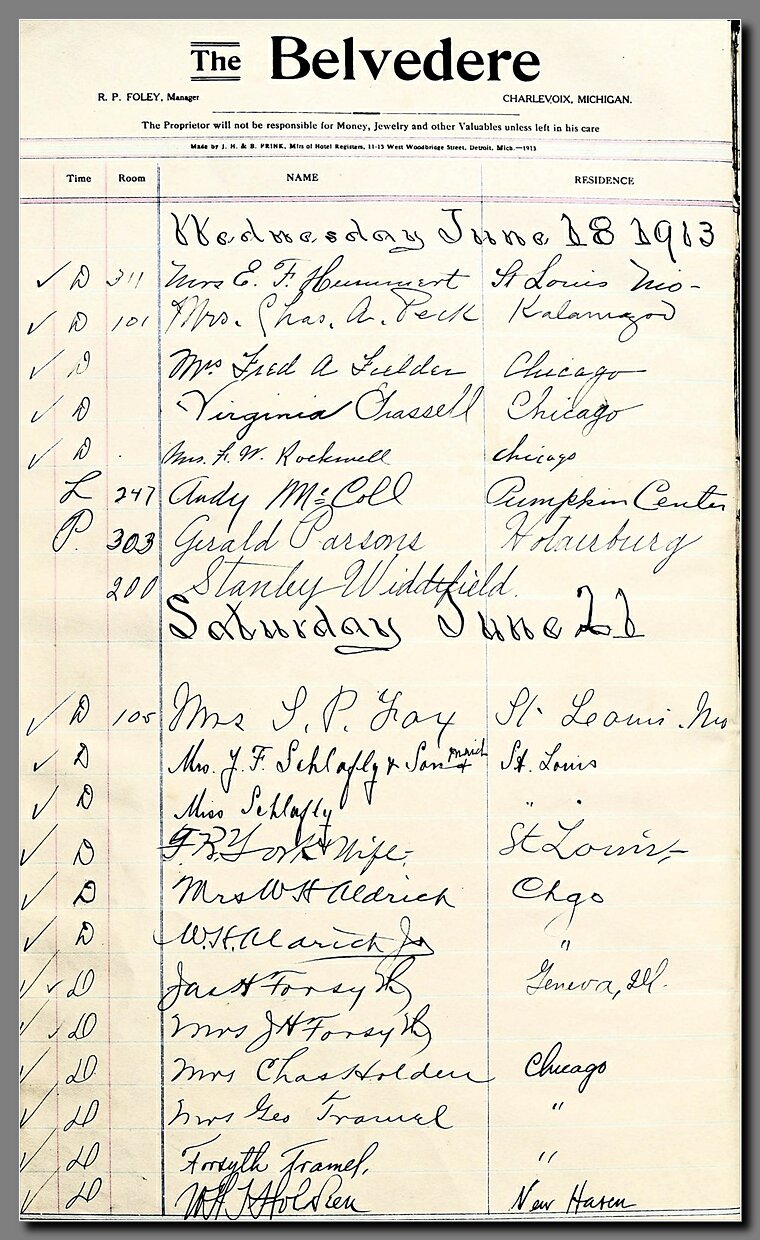 The Belvedere
R. P. FOLEY, Manager CHARLEVOIX, MICHIGAN.
The Proprietor will not be responsible for Money, Jewelry and other Valuables unless left in his care
Made by J. H. & B. FRINK, Mfrs of Hotel Registers, 11-15 West Woodbridge Street, Detroit, Mich.—1913
Time Room NAME RESIDENCE
Wednesday June 18 1913
✓ D 311 Mrs E. F. Hummert St Louis Mo-
✓ D 101 Mrs. Chas. A. Peck Kalamazoo
✓ D Mrs Fred A Fielder Chicago
✓ D Virginia Chassell Chicago
✓ D Mrs. F. W. Rockwell chicago
L 247 Andy McColl Pumpkin Center
P. 303 Gerald Parsons Hotairburg
200 Stanley Widdifield.
Saturday June 21
✓ D 105 Mrs S. P. Fox St. Louis. Mo
✓ D Mrs. J. F. Schlafly & Son & St. Louis
✓ D Miss Schlafly " "
✓ D F R York & Wife St Louis
✓ D Mrs W H Aldrich Chgo
✓ D W. H. Aldrich Jr "
✓ ✓ D Jas H Forsyth Geneva, Ill.
✓ ✓ D Mrs J H Forsyth
✓ D Mrs Chas Holden Chicago
✓ D Mrs Geo Tramel "
✓ D Forsyth Tramel. "
✓ D Holden New Haven